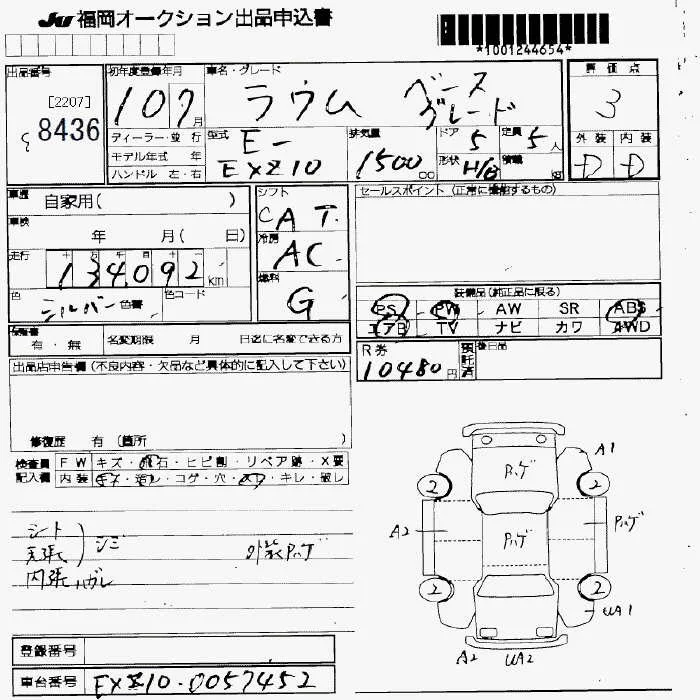 JU 福岡オークション出品申込書
*1001244654*
出品番号
[2207]
8436
初年度登録年月
10 7月
ディーラー・並行
モデル年式 年
ハンドル 左・右
車名・グレード
ラウム ベースグレード
型式
E-
EXZ10
排気量
1500
cc
ドア
5
定員
5人
形状
H/B
積載
kg
評価点
3
外装 内装
D D
車歴
自家用( )
車検
年 月( 日)
走行
十 万 千 百 十 一
134092 km
色
シルバー 色替
色コード
シフト
CAT
冷房
AC
燃料
G
セールスポイント(正常に機能するもの)
装備品(純正品に限る)
PS PW AW SR ABS
エアB TV ナビ カワ 4WD
保証書
有・無
名変期限 月 日迄に名変できる方
R券
10480円
預託済
後日品
出品店申告欄(不良内容・欠品など具体的に記入して下さい)
修復歴 有(箇所 )
検査員記入欄
FW キズ・飛石・ヒビ割・リペア跡・X要
内装 キズ・汚レ・コゲ・穴・スレ・キレ・破レ
シート
天張 シミ
内張ハガレ
外装Pハゲ
A1
Pハゲ
2 2
A2
Pハゲ
Pハゲ
2 2
UA1
A2 UA2
登録番号
車台番号 EXZ10-0057452